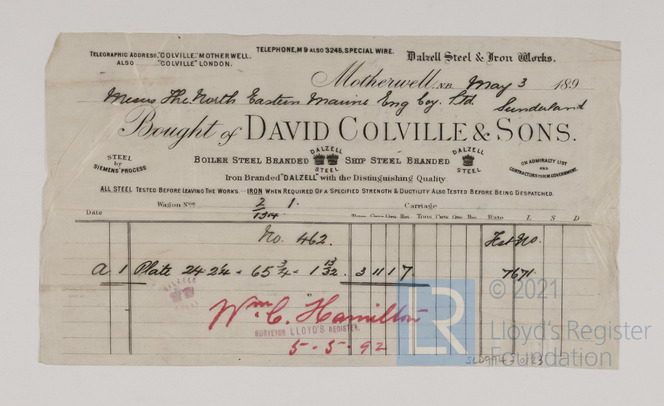 TELEGRAPHIC ADDRESS, "COLVILLE" MOTHERWELL.
ALSO "COLVILLE" LONDON.
TELEPHONE, M9 ALSO 3246, SPECIAL WIRE.
Dalzell Steel & Iron Works.
Motherwell, N.B. May 3 189
Messrs The North Eastern Marine Eng Coy. Ltd. Sunderland
Bought of DAVID COLVILLE & SONS.
STEEL BY SIEMENS' PROCESS
BOILER STEEL BRANDED DALZELL STEEL SHIP STEEL BRANDED DALZELL STEEL
ON ADMIRALTY LIST AND CONTRACTORS TO H.M. GOVERNMENT.
Iron Branded "DALZELL" with the Distinguishing Quality
ALL STEEL TESTED BEFORE LEAVING THE WORKS. IRON WHEN REQUIRED OF A SPECIFIED STRENGTH & DUCTILITY ALSO TESTED BEFORE BEING DESPATCHED.
Wagon Nos. Carriage
Date Tons Cwts Qrs lbs. Rate L S D
No. 462. Hst No.
a 1 Plate 24 24 - 65 3/4 - 1 13/32 . 3 11 17 7671
DALZELL
Wm. C. Hamilton
SURVEYOR LLOYD'S REGISTER.
5-5-92
© 2021
LR
Lloyd's Register
Foundation